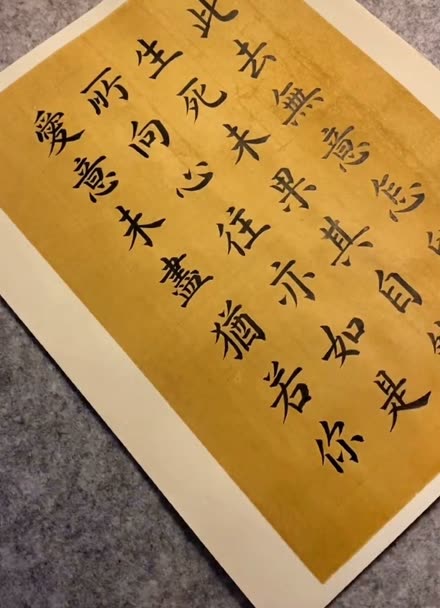 此去無意怎
生死未果其自
所向心往亦如是
愛意未盡猶若你